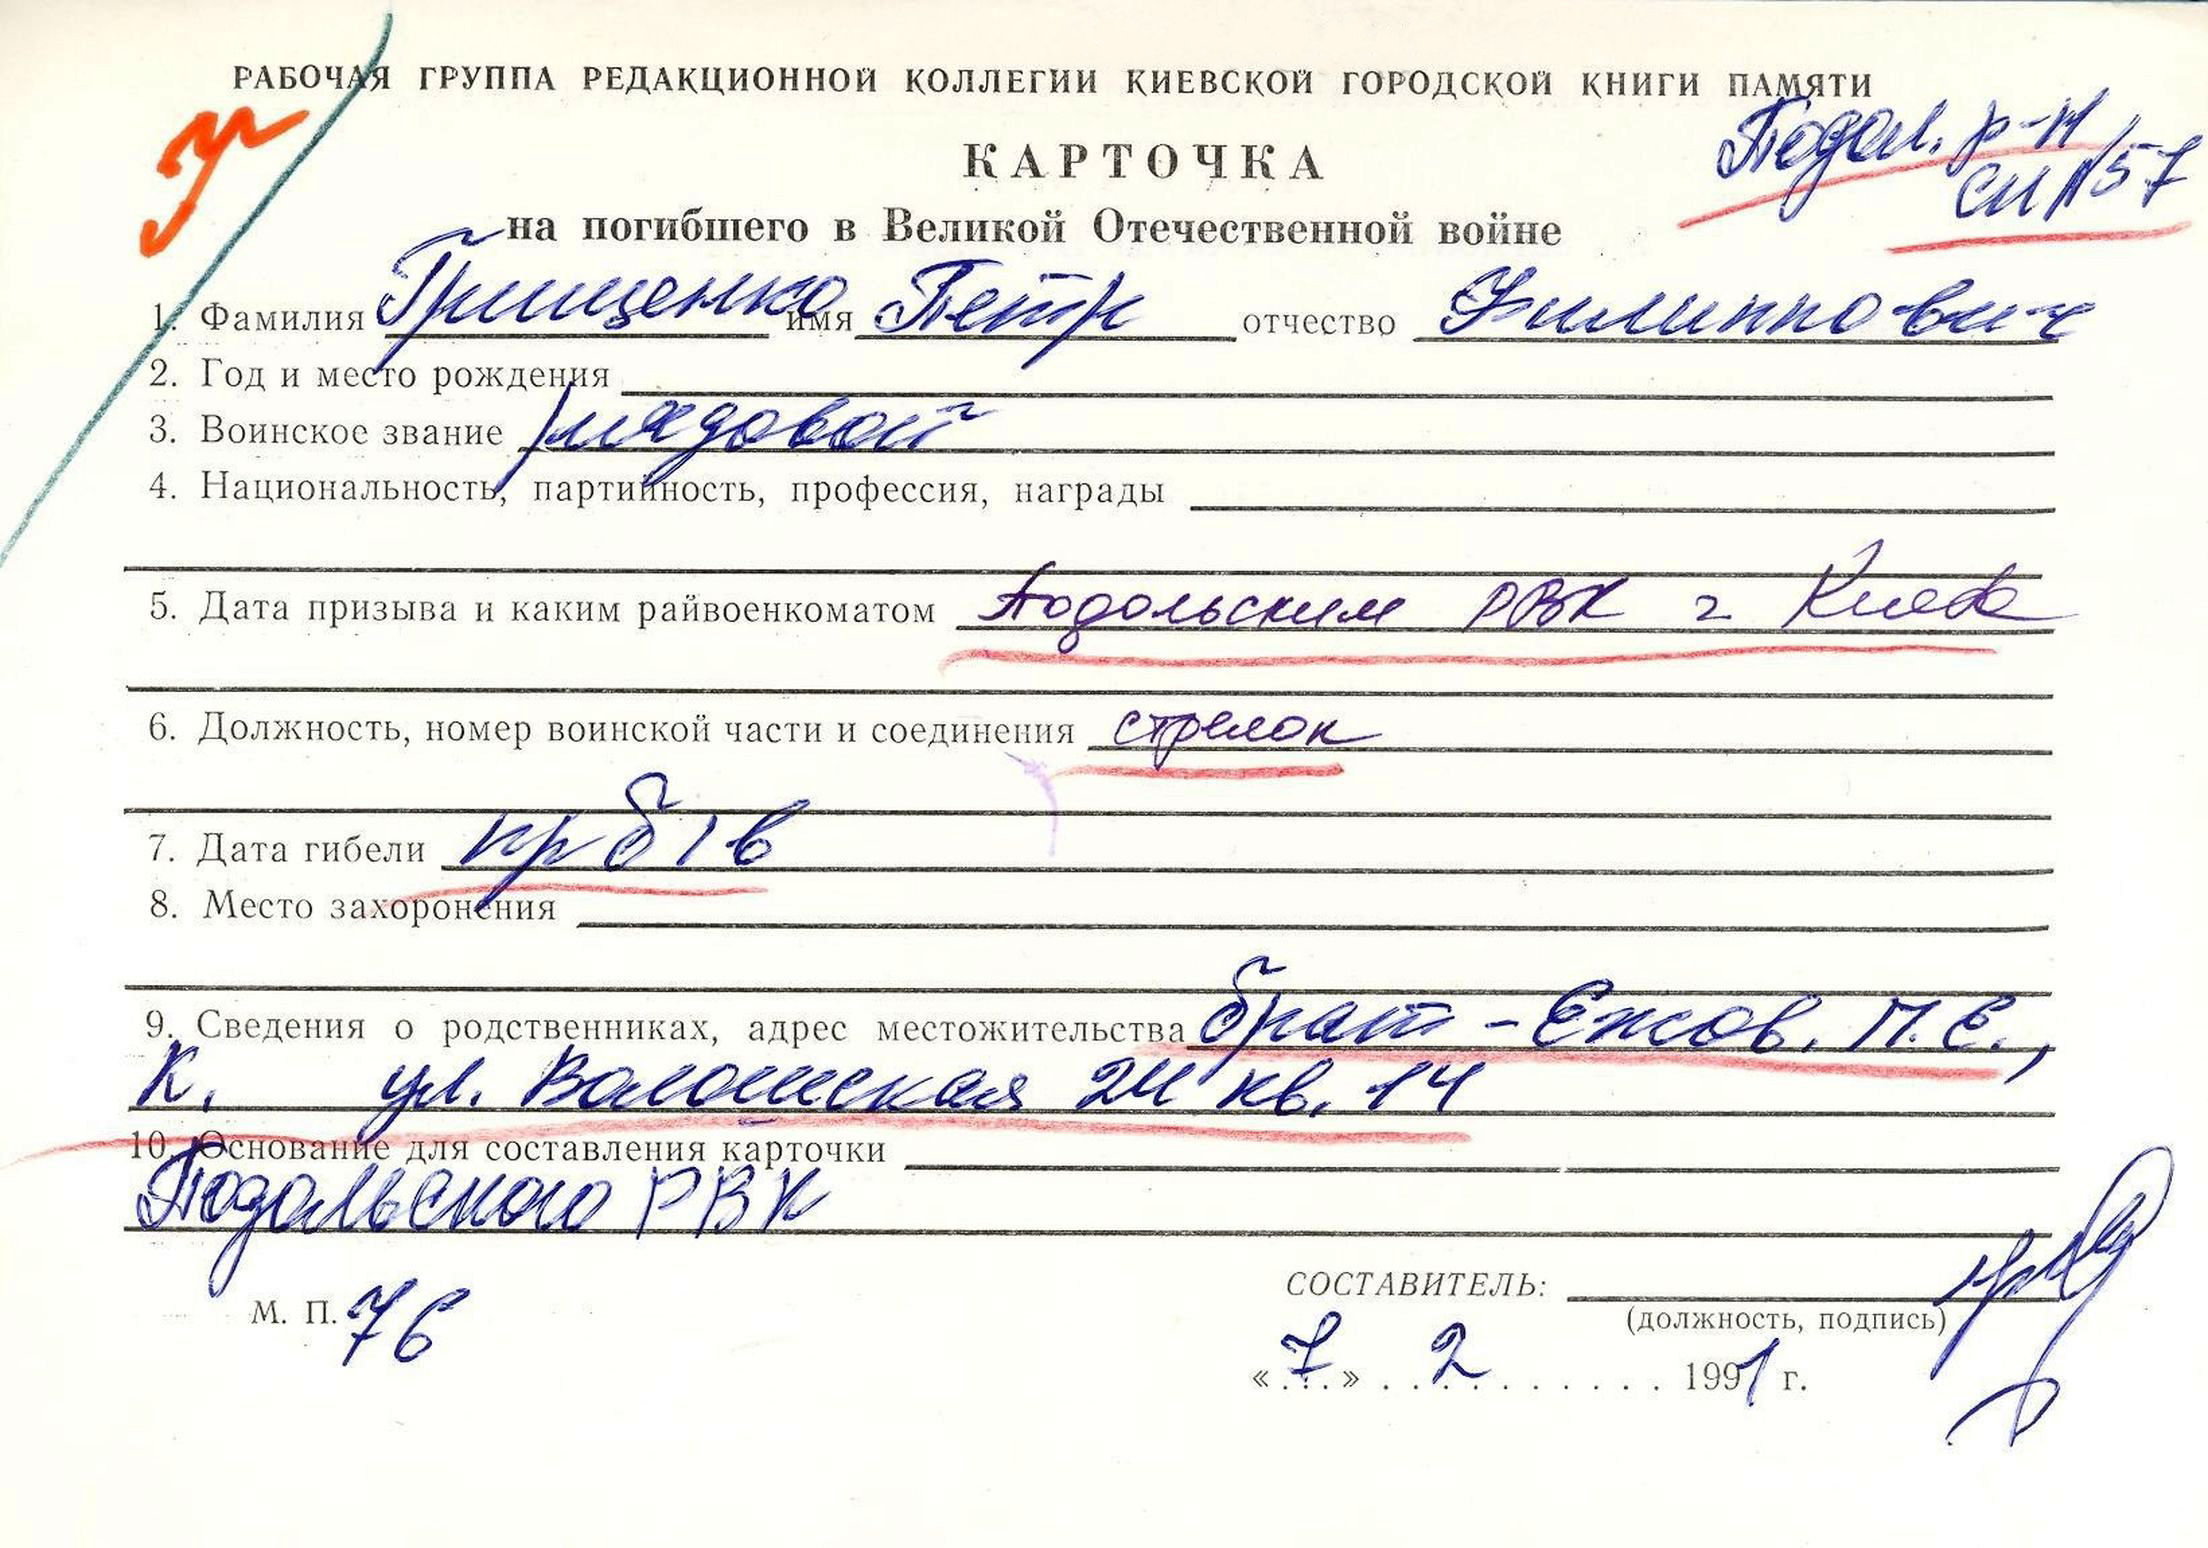 РАБОЧАЯ ГРУППА РЕДАКЦИОННОЙ КОЛЛЕГИИ КИЕВСКОЙ ГОРОДСКОЙ КНИГИ ПАМЯТИ
У
Подол. р-н
КАРТОЧКА
сп №57
на погибшего в Великой Отечественной войне
1. Фамилия Грищенко имя Петр отчество Филиппович
2. Год и место рождения
3. Воинское звание рядовой
4. Национальность, партийность, профессия, награды
5. Дата призыва и каким райвоенкоматом Подольским РВК г Киева
6. Должность, номер воинской части и соединения стрелок
7. Дата гибели пр б/в
8. Место захоронения
9. Сведения о родственниках, адрес местожительства брат - Ежов. П. Е.,
К. ул. Волошская 24 кв. 14
10. Основание для составления карточки
Подольского РВК
М. П. 76
СОСТАВИТЕЛЬ:
(должность, подпись)
«7» 2 1991 г.